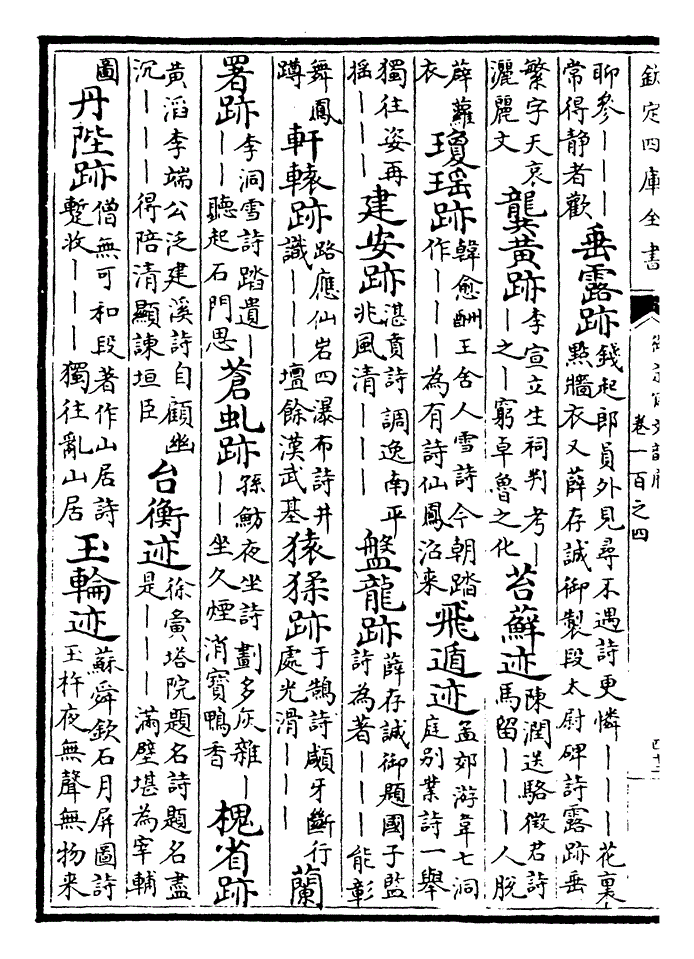 欽定四庫全書
卷一百之四
四十二
聊參｜｜｜
常得靜者歡
垂露跡
錢起郎員外見尋不遇詩更憐｜｜｜花裏
點牆衣又薛存誠御製段太尉碑詩露跡垂
繁字天哀
灑麗文
龔黃跡
李宣立生祠判考｜
｜之｜窮卓魯之化
苔蘚迹
陳潤送駱徵君詩
馬留｜｜｜人脫
薜蘿
衣
瓊瑤跡
韓愈酬王舍人雪詩今朝踏
作｜｜｜為有詩仙鳳沼來
飛遁迹
孟郊游韋七洞
庭别業詩一舉
獨往姿再
揺｜｜｜
建安跡
湛賁詩調逸南平
兆風清｜｜｜
盤龍跡
薛存誠御題國子監
詩為著｜｜｜能彰
舞鳳
蹲
軒轅跡
路應仙岩四瀑布詩井
識｜｜｜壇餘漢武基
猿猱跡
于鵠詩巘牙斷行
處光滑｜｜｜
蘭
署跡
李洞雪詩踏遺｜
｜｜聽起石門思
蒼虬跡
孫魴夜坐詩劃多灰雜｜
｜｜坐久煙消寶鴨香
槐省跡
黃滔李端公泛建溪詩自顧幽
沉｜｜｜得陪清顯諫垣臣
台衡迹
徐夤塔院題名詩題名盡
是｜｜｜滿壁堪為宰輔
圖
丹陛跡
僧無可和段著作山居詩
蹔收｜｜｜獨往亂山居
玉輪迹
蘇舜欽石月屏圖詩
玉杵夜無聲無物來